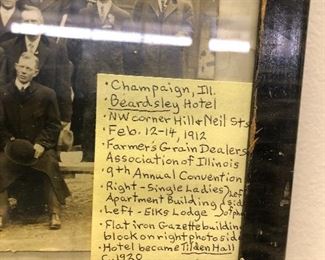 • Champaign, Ill.
• Beardsley Hotel
• NW corner Hill & Neil Sts
• Feb. 12-14, 1912
• Farmer's Grain Dealers
Association of Illinois
• 9th Annual Convention
• Right - Single Ladies Left
Apartment Building side
• Left - Elks Lodge of photo
• Flat iron Gazette building
block on right photo side
• Hotel became Tilden Hall
C. 1920